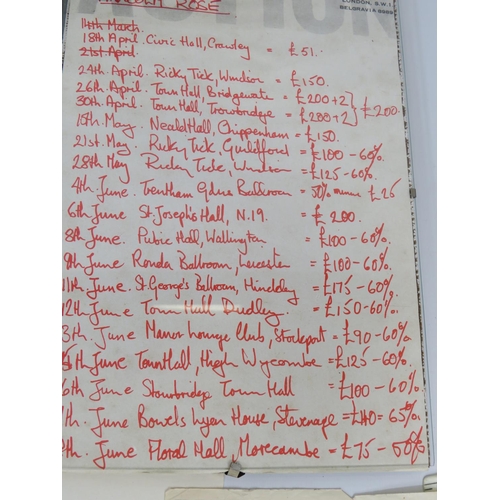 ROSE
LONDON, S.W.1
BELGRAVIA
14th March.
18th April. Civic Hall, Crawley = £51.
21st April.
24th April. Ricky Tick, Windsor = £150.
26th April. Town Hall, Bridgewater = £200+2 } £200.
30th April. Town Hall, Trowbridge = £200+2
15th May. Neald Hall, Chippenham = £150.
21st May. Ricky Tick, Guildford = £100 - 60%.
28th May Ricky Tick, Windsor = £125 - 60%.
4th June. Trentham Gdns Ballroom = 50% £25
6th June St. Joseph's Hall, N.19. = £200.
8th June. Pubic Hall, Wallington = £100 - 60%
9th June Ronda Ballroom, Leicester = £100 - 60%.
11th June. St George's Ballroom, Hinckley = £175 - 60%.
12th June Town Hall Dudley = £150 - 60%.
3th June Manor Lounge Club, Stockport = £90 - 60%.
5th June Town Hall, High Wycombe = £125 - 60%.
6th June Stourbridge Town Hall = £100 - 60%.
7th June Bowels Lyon House, Stevenage = £110 = 65%.
June Floral Hall, Morecambe = £75 - 60%